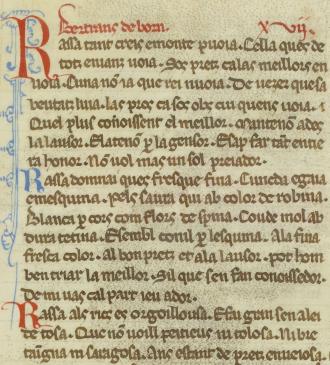 Bertrans de born. xvij.
Rassa tant creis emonte ꝑuoia. Cella ques de
totz enianz uoia. Sos pretz calas meillors en
uoia. Cuna non ia que rei nuoia. De uezer quesa
beutatz luia. Las pros ca sos obs cui quens uoia. i
Quel plus conoissent el meillor. mantenon ades
la lausor. Elatenon ꝑ la gensor. Esap far tāt entie
ra honor. Nō uol mas un sol preiador.
Rassa domnai ques fresque fina. Cuneda egaia
emesquina. Pels saura ab color de robina.
Blanca ꝑ cors com flors de spina. Coude mol ab
dura tetina. Esembl conil ꝑ lesquina. Ala fina
fresca color. Al bon pretz et ala lausor. pot hom
ben triar la meillor. Sil que sen fan conoissedor.
De mi uas cal part ieu ador.
Rassa als rics es orgoillousa. Efai gran sen alei
de tosa. Que nō uoill peiteus ni tolosa. Ni bre
taigna ni saragosa. Ans estant de pretz enueiosa.